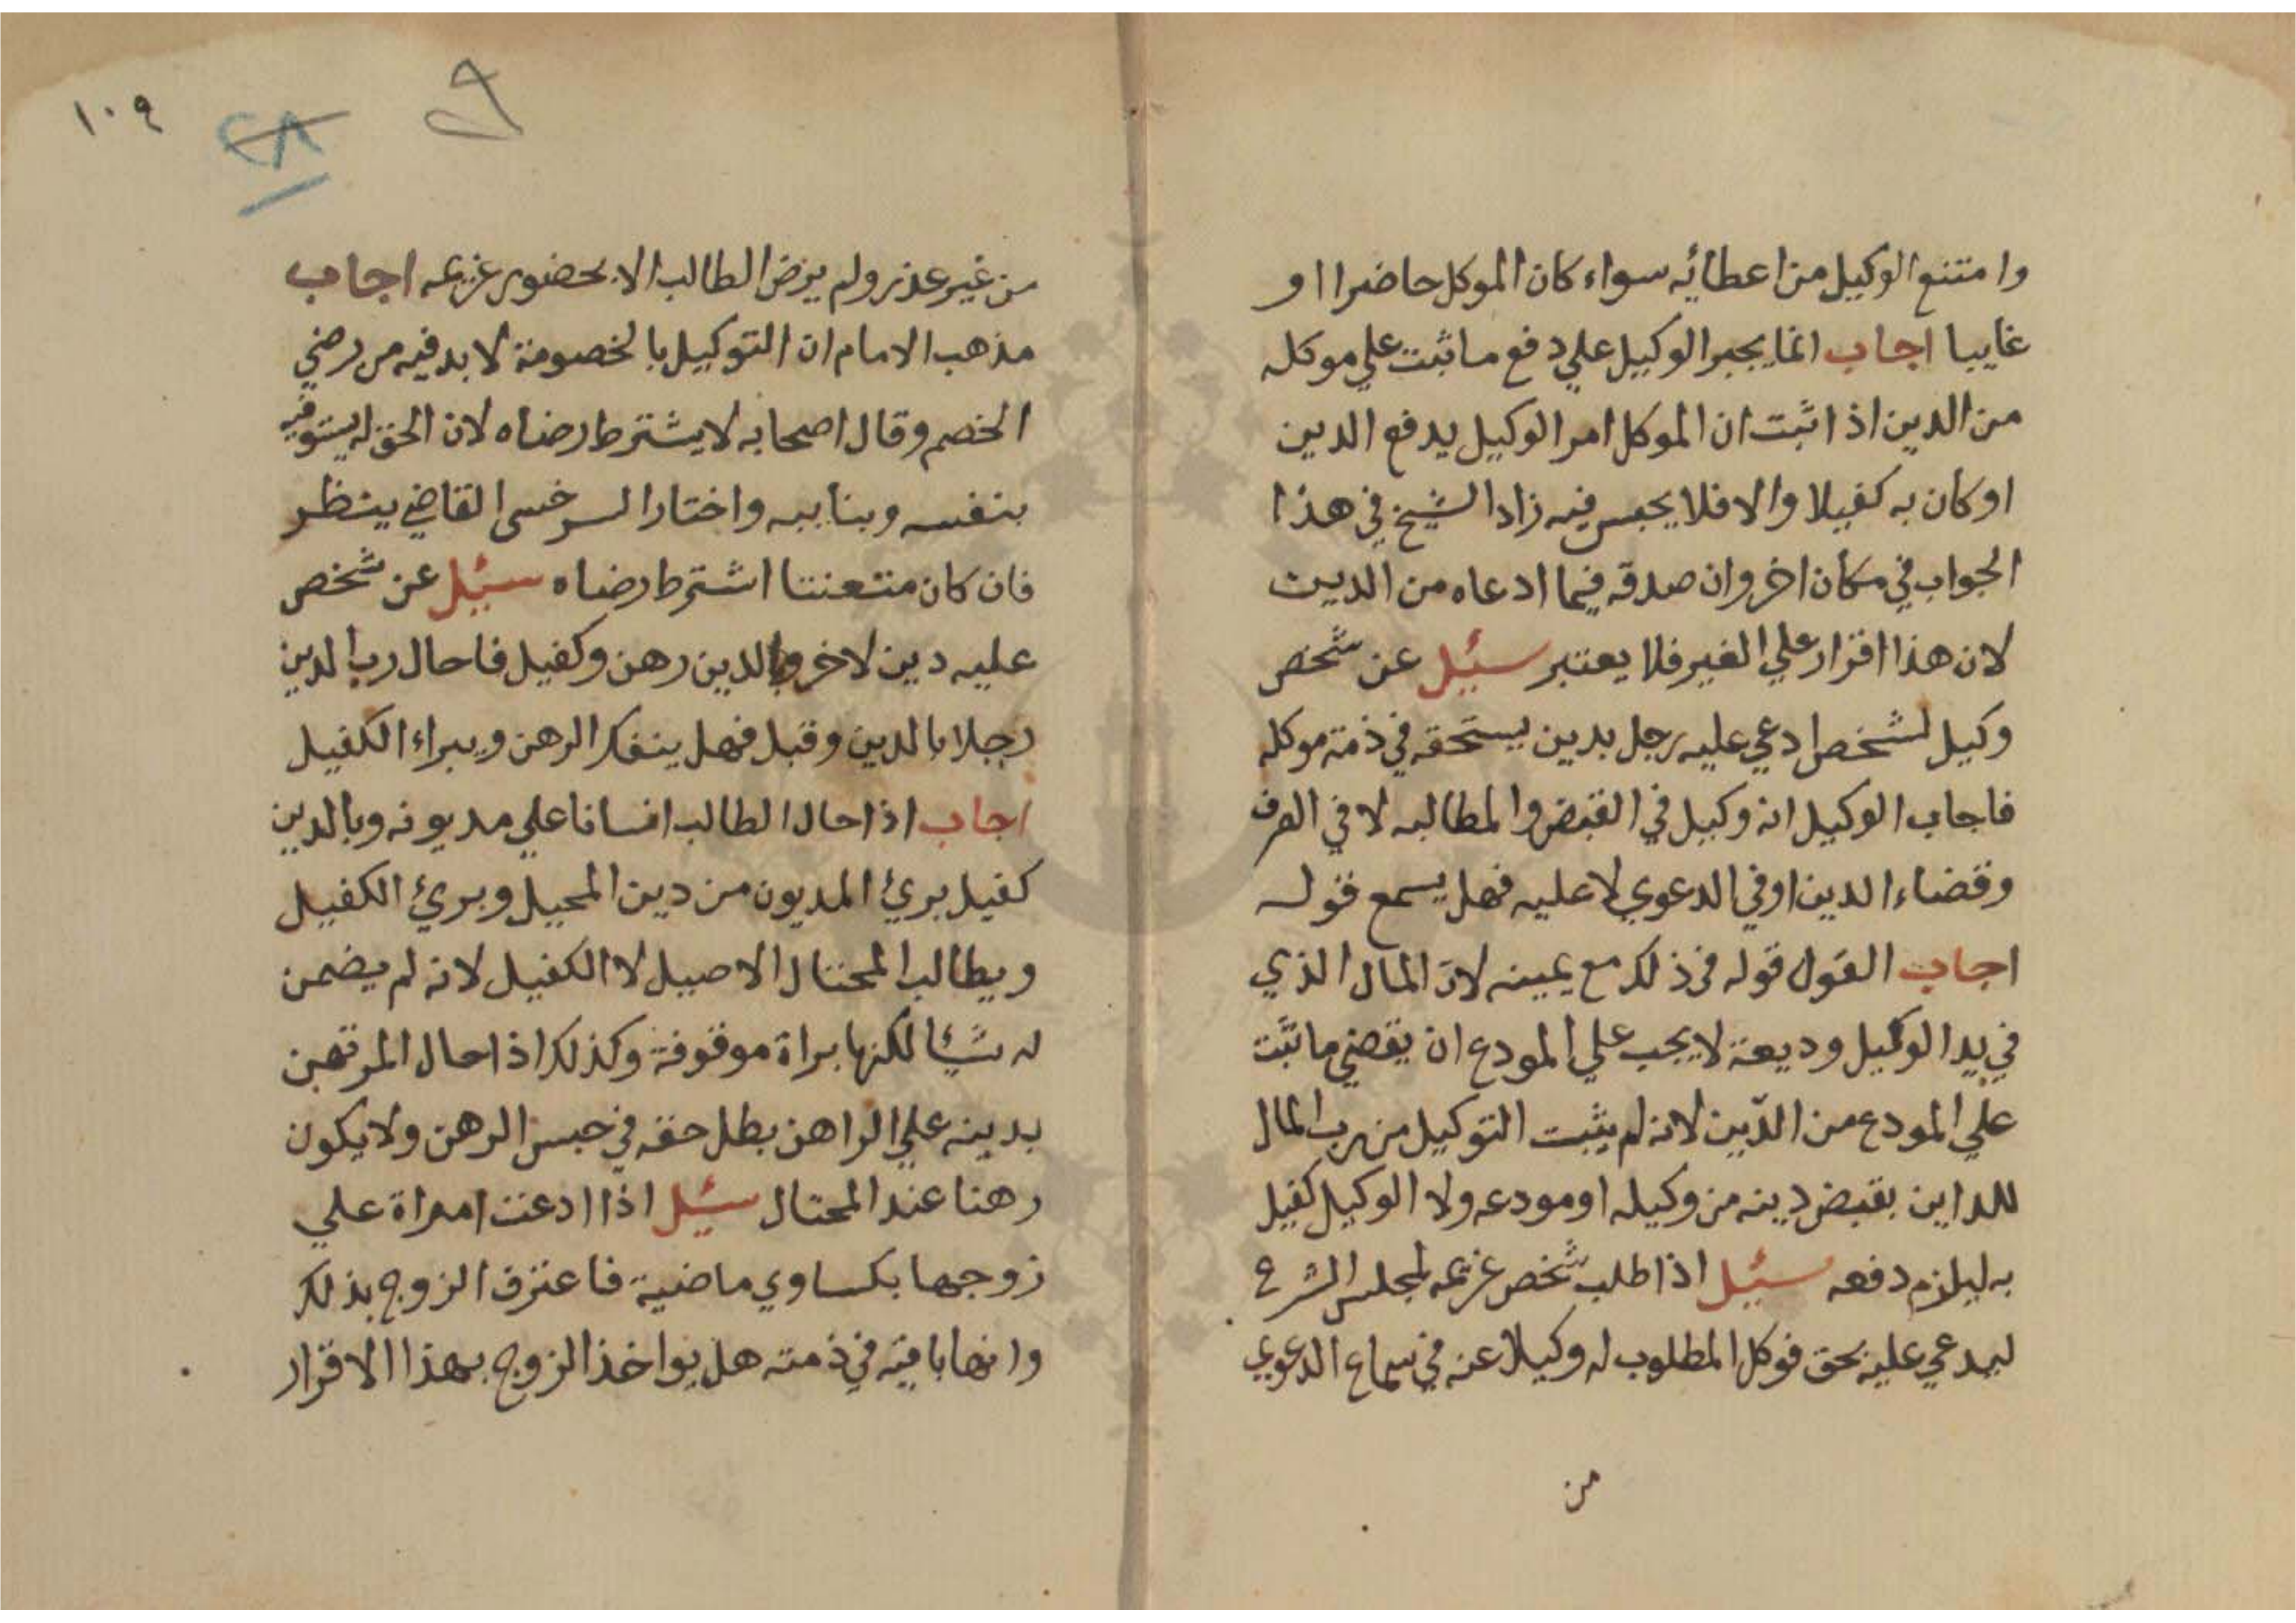 وامتنع الوكيل من اعطائه سواء كان الموكل حاضرا او
غايبا اجاب انما يجبر الوكيل علي دفع ما ثبت علي موكله
من الدين اذا ثبت ان الموكل امر الوكيل يدفع الدين
او كان به كفيلا والا فلا يحبس فيه زاد الشيخ في هذا
الجواب في مكان اخر وان صدقه فيما ادعاه من الدين
لان هذا اقرار علي الغير فلا يعتبر سئيل عن شخص
وكيل لشخص ادعي عليه رجل بدين يستحقه في ذمة موكله
فاجاب الوكيل انه وكيل في القبض والمطالبه لا في الصرف
وقضاء الدين او في الدعوي لا عليه فهل يسمع قوله
اجاب القول قوله في ذلك مع يمينه لان المال الذي
في يد الوكيل وديعة لا يجب علي المودع ان يقضي ما ثبت
علي المودع من الدين لانه لم يثبت التوكيل من رب المال
للداين بقبض دينه من وكيله او مودعه ولا الوكيل كفيل
به ليلزم دفعه سئيل اذا طلب شخص غريمه لمجلس الشرع
ليدعي عليه بحق فوكل المطلوب له وكيلا عنه في سماع الدعوي
من
١٠٩
من غير عذر ولم يرض الطالب الا بحضور غريمه اجاب
مذهب الامام ان التوكيل بالخصومة لا بد فيه من رضي
الخصم وقال اصحابه لا يشترط رضاه لان الحق له يستوفيه
بنفسه وبنايبه واختار السرخسى القاضي ينظر
فان كان متعنتا اشترط رضاه سئيل عن شخص
عليه دين لاخر وبالدين رهن وكفيل فاحال رب الدين
رجلا بالدين وقبل فهل ينفك الرهن ويبراء الكفيل
اجاب اذا احال الطالب انسانا علي مديونه وبالدين
كفيل بريئ المديون من دين المحيل وبريئ الكفيل
ويطالب المحتال الاصيل لا الكفيل لانه لم يضمن
له شيئا لكنها براة موقوفة وكذلك اذا احال المرتهن
بدينه علي الراهن بطل حقه في حبس الرهن ولا يكون
رهنا عند المحتال سئيل اذا ادعت امراة علي
زوجها بكساوي ماضية فاعترف الزوج بذلك
وانها باقية في ذمته هل يواخذ الزوج بهذا الاقرار